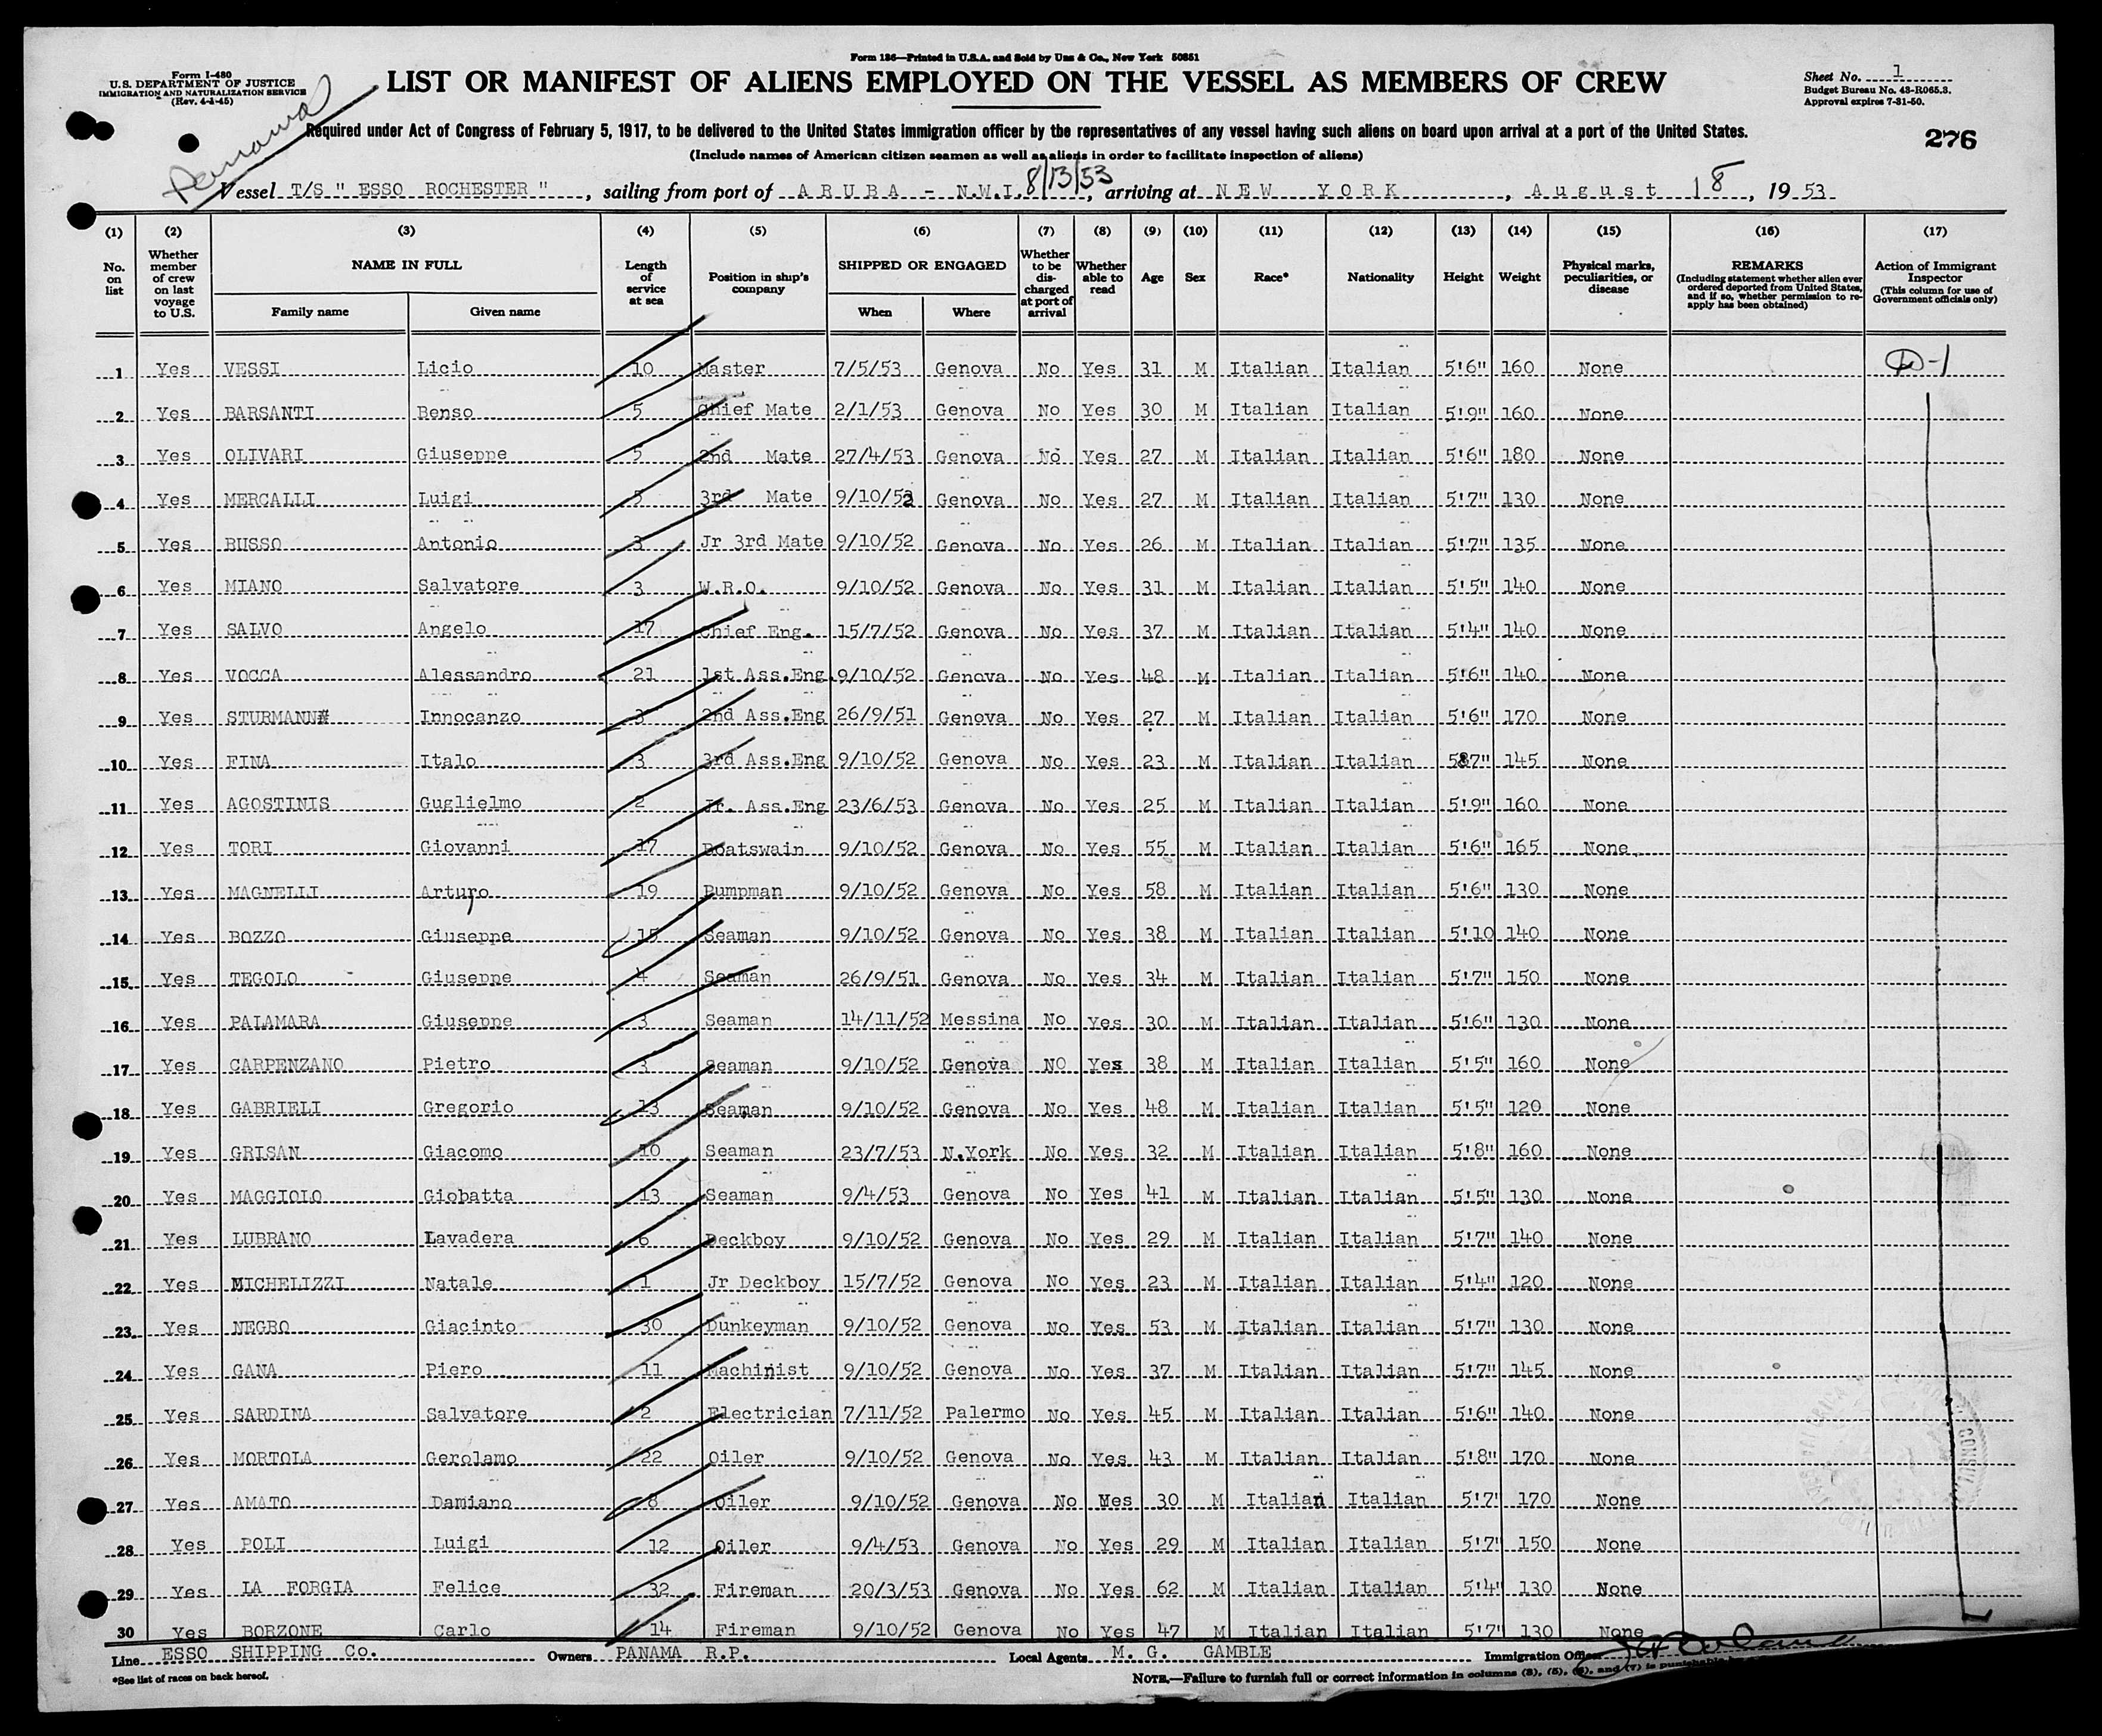 Form 136—Printed in U.S.A. and Sold by Unz & Co., New York 50851
Form I-480
U.S. DEPARTMENT OF JUSTICE
IMMIGRATION AND NATURALIZATION SERVICE
(Rev. 4-1-45)
Panama
LIST OR MANIFEST OF ALIENS EMPLOYED ON THE VESSEL AS MEMBERS OF CREW
Sheet No. 1
Budget Bureau No. 43-R065.3.
Approval expires 7-31-50.
Required under Act of Congress of February 5, 1917, to be delivered to the United States immigration officer by the representatives of any vessel having such aliens on board upon arrival at a port of the United States.
276
(Include names of American citizen seamen as well as aliens in order to facilitate inspection of aliens)
Vessel T/S " ESSO ROCHESTER ", sailing from port of ARUBA - N.W.I. 8/13/53, arriving at NEW YORK, August 18, 1953
(1) (2) (3) (4) (5) (6) (7) (8) (9) (10) (11) (12) (13) (14) (15) (16) (17)
No. on list
Whether member of crew on last voyage to U.S.
NAME IN FULL
Family name
Given name
Length of service at sea
Position in ship's company
SHIPPED OR ENGAGED
When
Where
Whether to be discharged at port of arrival
Whether able to read
Age
Sex
Race*
Nationality
Height
Weight
Physical marks, peculiarities, or disease
REMARKS
(Including statement whether alien ever ordered deported from United States, and if so, whether permission to reapply has been obtained)
Action of Immigrant Inspector
(This column for use of Government officials only)
1 Yes VESSI Licio 10 Master 7/5/53 Genova No Yes 31 M Italian Italian 5'6" 160 None D-1
2 Yes BARSANTI Benso 5 Chief Mate 2/1/53 Genova No Yes 30 M Italian Italian 5'9" 160 None
3 Yes OLIVARI Giuseppe 5 2nd Mate 27/4/53 Genova No Yes 27 M Italian Italian 5'6" 180 None
4 Yes MERCALLI Luigi 5 3rd Mate 9/10/52 Genova No Yes 27 M Italian Italian 5'7" 130 None
5 Yes RUSSO Antonio 3 Jr 3rd Mate 9/10/52 Genova No Yes 26 M Italian Italian 5'7" 135 None
6 Yes MIANO Salvatore 3 W.R.O. 9/10/52 Genova No Yes 31 M Italian Italian 5'5" 140 None
7 Yes SALVO Angelo 17 Chief Eng. 15/7/52 Genova No Yes 37 M Italian Italian 5'4" 140 None
8 Yes VOCCA Alessandro 21 1st Ass.Eng 9/10/52 Genova No Yes 48 M Italian Italian 5'6" 140 None
9 Yes STURMANN Innocanzo 3 2nd Ass.Eng 26/9/51 Genova No Yes 27 M Italian Italian 5'6" 170 None
10 Yes FINA Italo 3 3rd Ass.Eng 9/10/52 Genova No Yes 23 M Italian Italian 5'7" 145 None
11 Yes AGOSTINIS Guglielmo 2 Jr. Ass.Eng 23/6/53 Genova No Yes 25 M Italian Italian 5'9" 160 None
12 Yes TORI Giovanni 17 Boatswain 9/10/52 Genova No Yes 55 M Italian Italian 5'6" 165 None
13 Yes MAGNELLI Arturo 19 Pumpman 9/10/52 Genova No Yes 58 M Italian Italian 5'6" 130 None
14 Yes BOZZO Giuseppe 15 Seaman 9/10/52 Genova No Yes 38 M Italian Italian 5'10 140 None
15 Yes TEGOLO Giuseppe 4 Seaman 26/9/51 Genova No Yes 34 M Italian Italian 5'7" 150 None
16 Yes PALAMARA Giuseppe 3 Seaman 14/11/52 Messina No Yes 30 M Italian Italian 5'6" 130 None
17 Yes CARPENZANO Pietro 3 Seaman 9/10/52 Genova NO Yes 38 M Italian Italian 5'5" 160 None
18 Yes GABRIELI Gregorio 13 Seaman 9/10/52 Genova No Yes 48 M Italian Italian 5'5" 120 None
19 Yes GRISAN Giacomo 10 Seaman 23/7/53 N.York No Yes 32 M Italian Italian 5'8" 160 None
20 Yes MAGGIOLO Giobatta 13 Seaman 9/4/53 Genova No Yes 41 M Italian Italian 5'5" 130 None
21 Yes LUBRANO Lavadera 6 Deckboy 9/10/52 Genova No Yes 29 M Italian Italian 5'7" 140 None
22 Yes MICHELIZZI Natale 1 Jr Deckboy 15/7/52 Genova No Yes 23 M Italian Italian 5'4" 120 None
23 Yes NEGRO Giacinto 30 Dunkeyman 9/10/52 Genova No Yes 53 M Italian Italian 5'7" 130 None
24 Yes GANA Piero 11 Machinist 9/10/52 Genova No Yes 37 M Italian Italian 5'7" 145 None
25 Yes SARDINA Salvatore 2 Electrician 7/11/52 Palermo No Yes 45 M Italian Italian 5'6" 140 None
26 Yes MORTOLA Gerolamo 22 Oiler 9/10/52 Genova No Yes 43 M Italian Italian 5'8" 170 None
27 Yes AMATO Damiano 8 Oiler 9/10/52 Genova No Yes 30 M Italian Italian 5'7" 170 None
28 Yes POLI Luigi 12 Oiler 9/4/53 Genova No Yes 29 M Italian Italian 5'7" 150 None
29 Yes LA FORGIA Felice 32 Fireman 20/3/53 Genova No Yes 62 M Italian Italian 5'4" 130 None
30 Yes BORZONE Carlo 14 Fireman 9/10/52 Genova No Yes 47 M Italian Italian 5'7" 130 None
Line ESSO SHIPPING Co. Owners PANAMA R.P. Local Agents M. G. GAMBLE Immigration Officer
*See list of races on back hereof.
NOTE.—Failure to furnish full or correct information in columns (3), (5), (6), and (7) is punishable